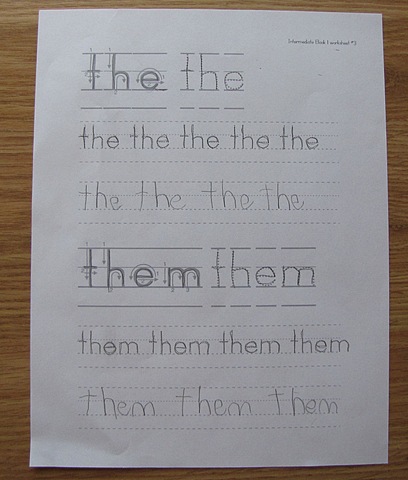 Intermediate Book 1 worksheet #2
the the
the the the the the
the the the the
them them
them them them them
them them them